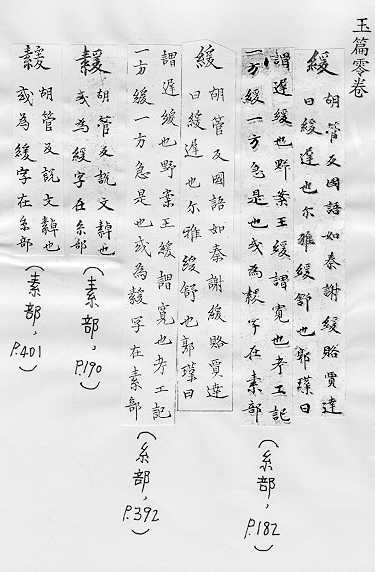 玉篇零卷
緩 胡管反國語如秦謝緩賂賈逵
曰緩遲也尒雅緩舒也郭璞曰
謂遲緩也野案王緩謂寬也考工記
一方緩一方急是也或為䋶字在素部
(糸部,P.182)
緩 胡管反國語如秦謝緩賂賈逵
曰緩遲也尒雅緩舒也郭璞曰
謂遲緩也野案王緩謂寬也考工記
一方緩一方急是也或為字在素部
(糸部,P.392)
胡管反說文繛也
或為緩字在糸部
(素部,P.190)
胡管反說文繛也
或為緩字在糸部
(素部,P.401)